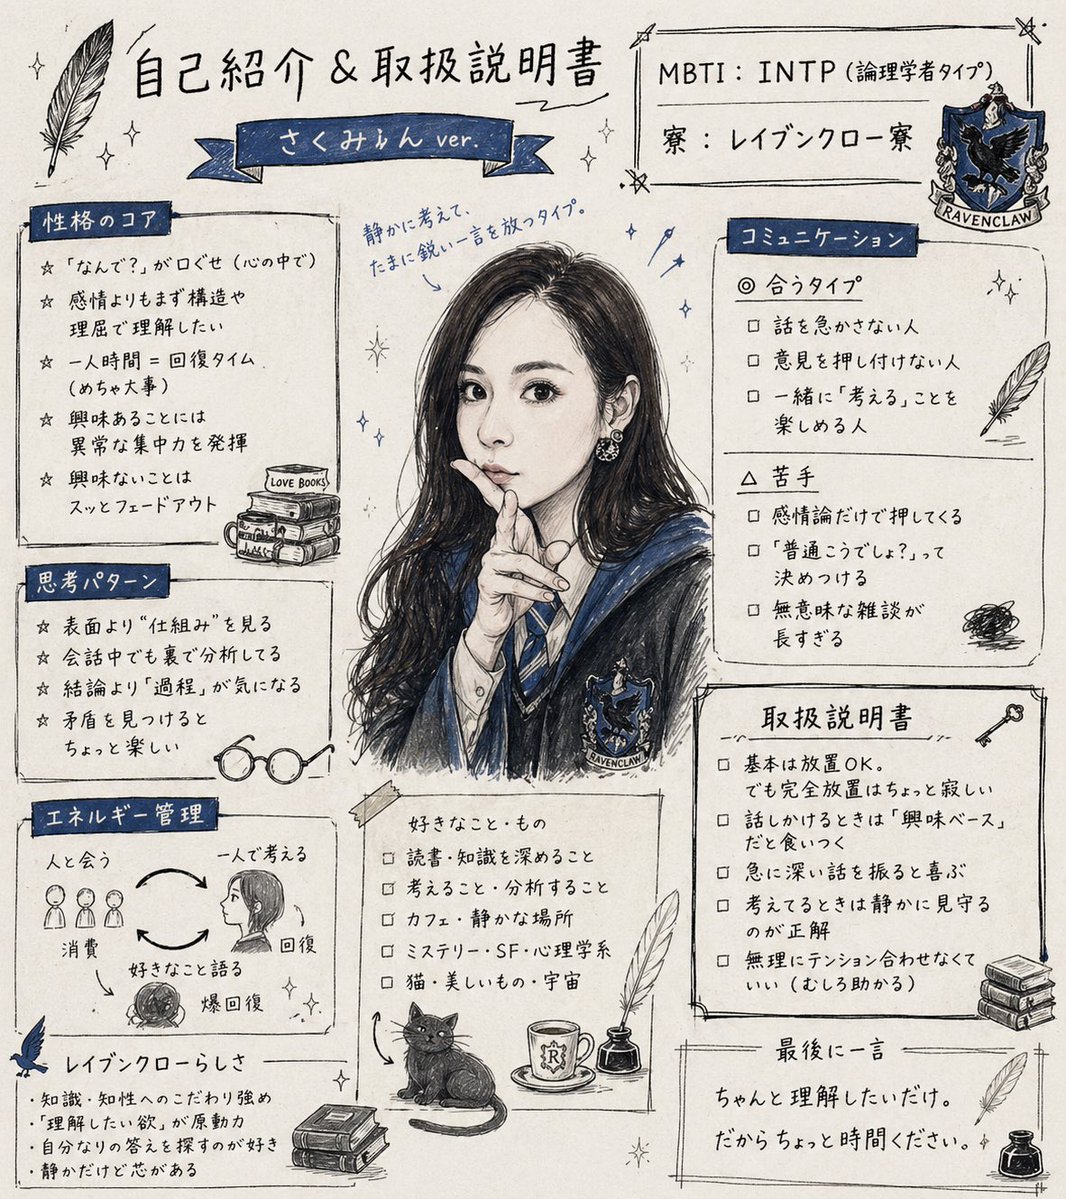 自己紹介 & 取扱説明書
さくみん ver.
MBTI : INTP (論理学者タイプ)
寮 : レイブンクロー寮
RAVENCLAW
静かに考えて、
たまに鋭い一言を放つタイプ。
性格のコア
☆ 「なんで?」が口ぐせ (心の中で)
☆ 感情よりもまず構造や
理屈で理解したい
☆ 一人時間 = 回復タイム
(めちゃ大事)
☆ 興味あることには
異常な集中力を発揮
☆ 興味ないことは
スッとフェードアウト
LOVE BOOKS
思考パターン
☆ 表面より“仕組み”を見る
☆ 会話中でも裏で分析してる
☆ 結論より「過程」が気になる
☆ 矛盾を見つけると
ちょっと楽しい
エネルギー管理
人と会う
一人で考える
消費
回復
好きなこと語る
爆回復
レイブンクローらしさ
・知識・知性へのこだわり強め
・「理解したい欲」が原動力
・自分なりの答えを探すのが好き
・静かだけど芯がある
RAVENCLAW
好きなこと・もの
□ 読書・知識を深めること
□ 考えること・分析すること
□ カフェ・静かな場所
□ ミステリー・SF・心理学系
□ 猫・美しいもの・宇宙
R
コミュニケーション
◎ 合うタイプ
□ 話を急かさない人
□ 意見を押し付けない人
□ 一緒に「考える」ことを
楽しめる人
△ 苦手
□ 感情論だけで押してくる
□ 「普通こうでしょ?」って
決めつける
□ 無意味な雑談が
長すぎる
取扱説明書
□ 基本は放置OK。
でも完全放置はちょっと寂しい
□ 話しかけるときは「興味ベース」
だと食いつく
□ 急に深い話を振ると喜ぶ
□ 考えてるときは静かに見守る
のが正解
□ 無理にテンション合わせなくて
いい (むしろ助かる)
最後に一言
ちゃんと理解したいだけ。
だからちょっと時間ください。